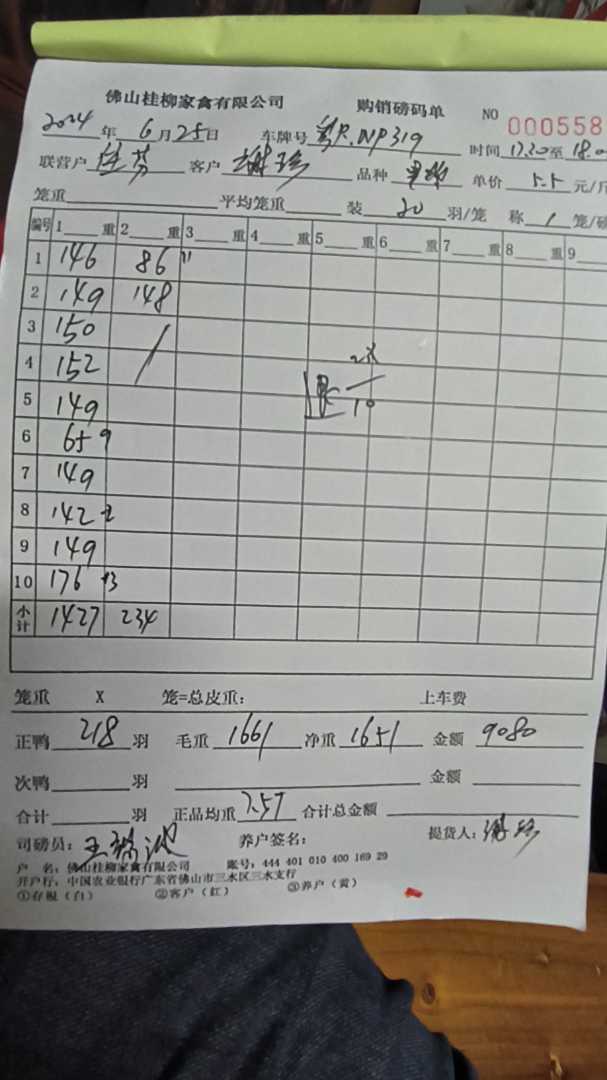 佛山桂柳家禽有限公司 购销磅码单 NO 000558
2024年 6月25日 车牌号 粤R.NP319 时间 17.20至18.0
联营户 客户 谢珍 品种 单价 5.5 元/斤
笼重 平均笼重 装 20 羽/笼 称 1 笼/磅
编号 1 重 2 重 3 重 4 重 5 重 6 重 7 重 8 重 9
1 146 86 11
2 149 148
3 150 /
4 152 退 2只/10
5 149
6 65 9
7 149
8 142 -2
9 149
10 176 +3
小计 1427 234
笼重 X 笼=总皮重: 上车费
正鸭 218 羽 毛重 1661 净重 1651 金额 9080
次鸭 羽 金额
合计 羽 正品均重 7.57 合计总金额
司磅员: 养户签名: 提货人: 谢珍
户 名: 佛山桂柳家禽有限公司 账号: 444 401 010 400 169 29
开户行: 中国农业银行广东省佛山市三水区三水支行
①存根(白) ②客户(红) ③养户(黄)